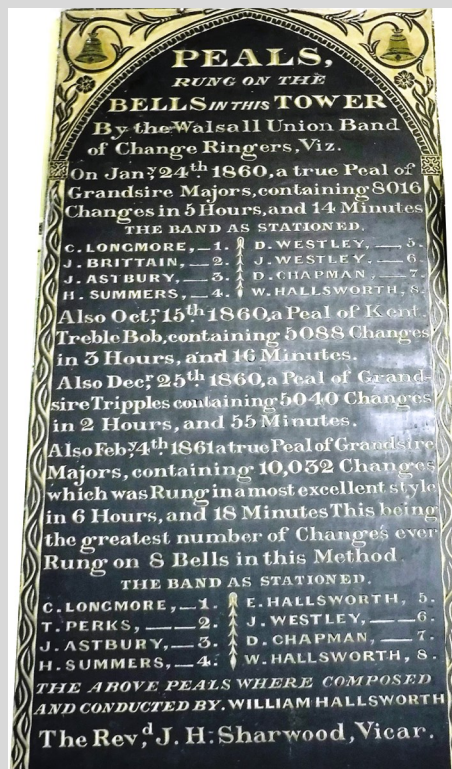 PEALS,
RUNG ON THE
BELLS IN THIS TOWER
By the Walsall Union Band
of Change Ringers, Viz.
On Jany. 24th 1860, a true Peal of
Grandsire Majors, containing 8016
Changes in 5 Hours, and 14 Minutes
THE BAND AS STATIONED.
C. LONGMORE, — 1. D. WESTLEY, — 5.
J. BRITTAIN, — 2. J. WESTLEY, — 6.
J. ASTBURY, — 3. D. CHAPMAN, — 7.
H. SUMMERS, — 4. W. HALLSWORTH, 8.
Also Octr. 15th 1860, a Peal of Kent
Treble Bob, containing 5088 Changes
in 3 Hours, and 16 Minutes.
Also Decr. 25th 1860, a Peal of Grand-
sire Tripples containing 5040 Changes
in 2 Hours, and 55 Minutes.
Also Feby. 4th 1861 a true Peal of Grandsire
Majors, containing 10,032 Changes
which was Rung in a most excellent style
in 6 Hours, and 18 Minutes This being
the greatest number of Changes ever
Rung on 8 Bells in this Method
THE BAND AS STATIONED.
C. LONGMORE, — 1. E. HALLSWORTH, 5.
T. PERKS, — 2. J. WESTLEY, — 6.
J. ASTBURY, — 3. D. CHAPMAN, — 7.
H. SUMMERS, — 4. W. HALLSWORTH, 8.
THE ABOVE PEALS WHERE COMPOSED
AND CONDUCTED BY. WILLIAM HALLSWORTH
The Revd. J. H: Sharwood, Vicar.